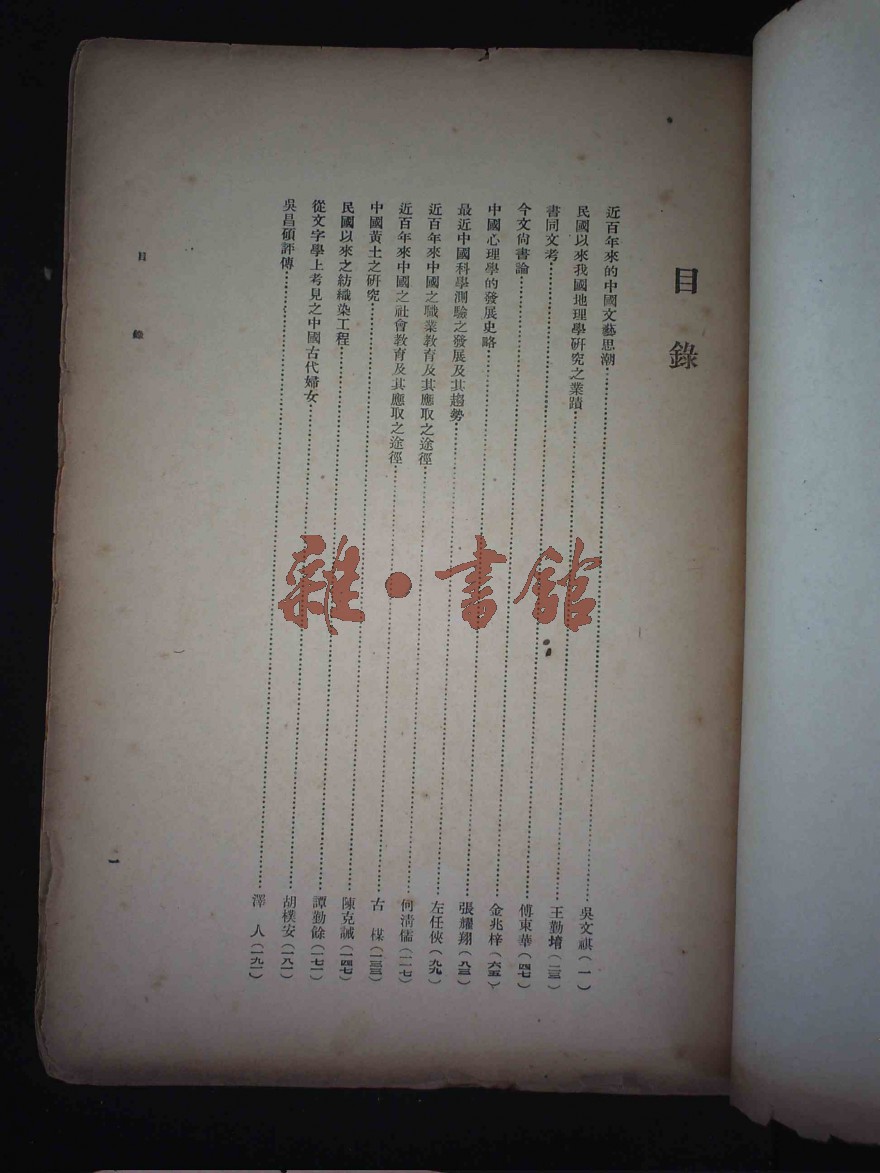 目錄
近百年來的中國文藝思潮……吳文祺(一)
民國以來我國地理學研究之業蹟……王勤堉(二三)
書同文考……傅東華(四七)
今文尙書論……金兆梓(六五)
中國心理學的發展史略……張耀翔(八三)
最近中國科學測驗之發展及其趨勢……左任俠(九九)
近百年來中國之職業教育及其應取之途徑……何淸儒(一一七)
近百年來中國之社會教育及其應取之途徑……古楳(一三三)
中國黃土之研究……陳克誠(一四七)
民國以來之紡織染工程……譚勤餘(一七一)
從文字學上考見之中國古代婦女……胡樸安(一八一)
吳昌碩評傳……澤人(一九一)
目錄
一
雜·書館